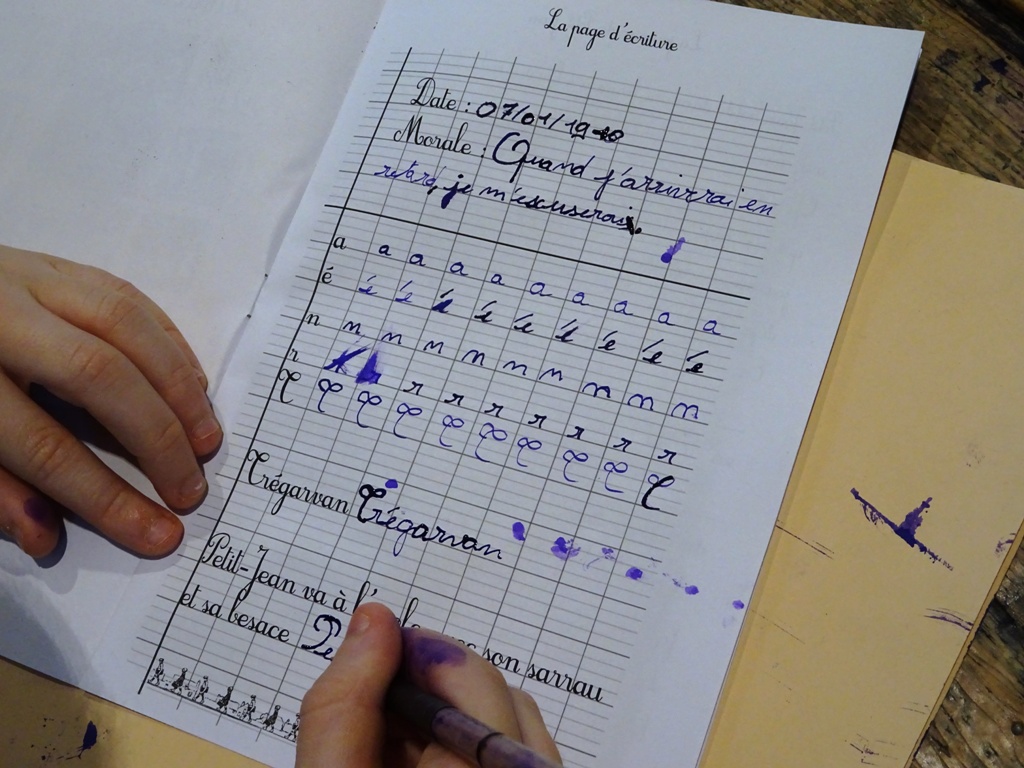 La page d'écriture
Date : 07/01/19
Morale : Quand j'arrivrrai en
retard, je m'escuserais.
a a a a a a a a a a
é é é é é é é é é é
n n n n n n n n n n
r r r r r r r r
T T T T T T T T T T
Trégarvan Trégarvan
Petit-Jean va à son sarrau
et sa besace Pe